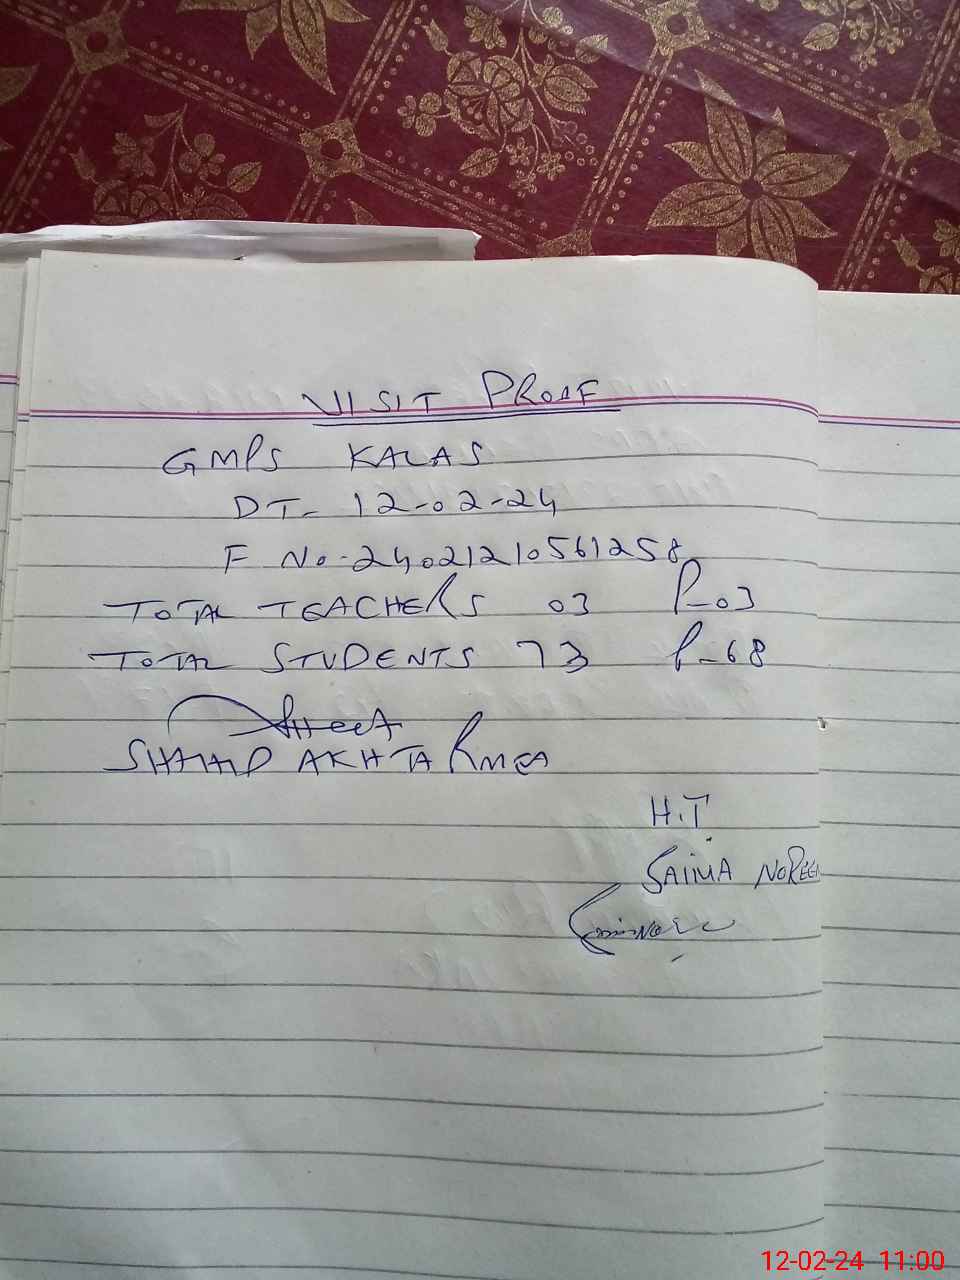 VISIT PROOF
GMPS KALAS
DT- 12-02-24
F No-24021210561258
TOTAL TEACHERS 03 P-03
TOTAL STUDENTS 73 P-68
SHAHID AKHTAR MEA
H.T
SAIMA NOREEN
12-02-24 11:00